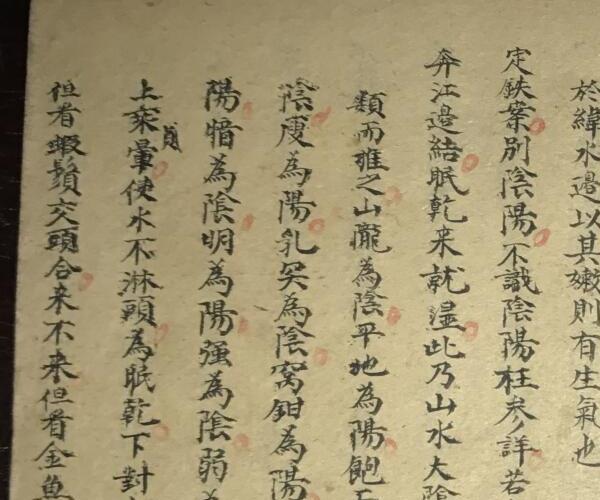 於緯水邉以其嫩則有生氣也
定鉄案別陰陽不識陰陽枉参詳若
奔江邉結眠乾来就湿此乃山水大陰
類而推之山隴為陰平地為陽飽
陰廋為陽乳突為陰窩鉗為陽
陽暗為陰明為陽强為陰弱為
上乘暈使水不淋頭為眠乾下對
但看蝦鬚交頭合来不来但看金魚